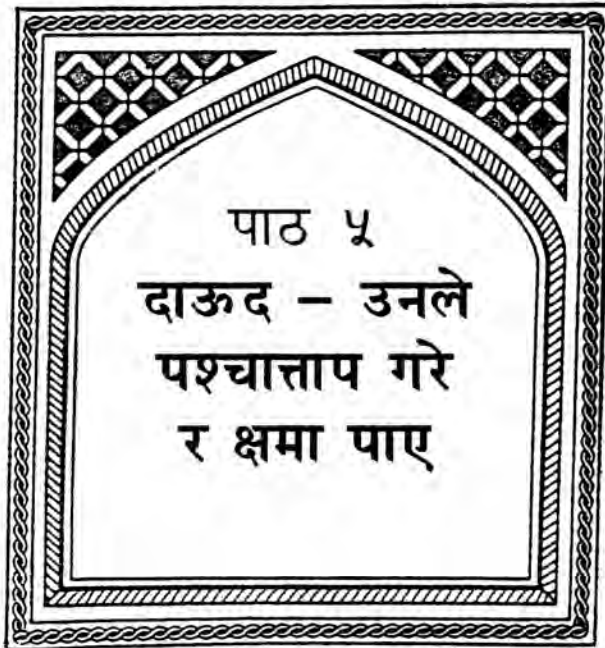 पाठ ५
दाऊद – उनले
पश्चात्ताप गरे
र क्षमा पाए